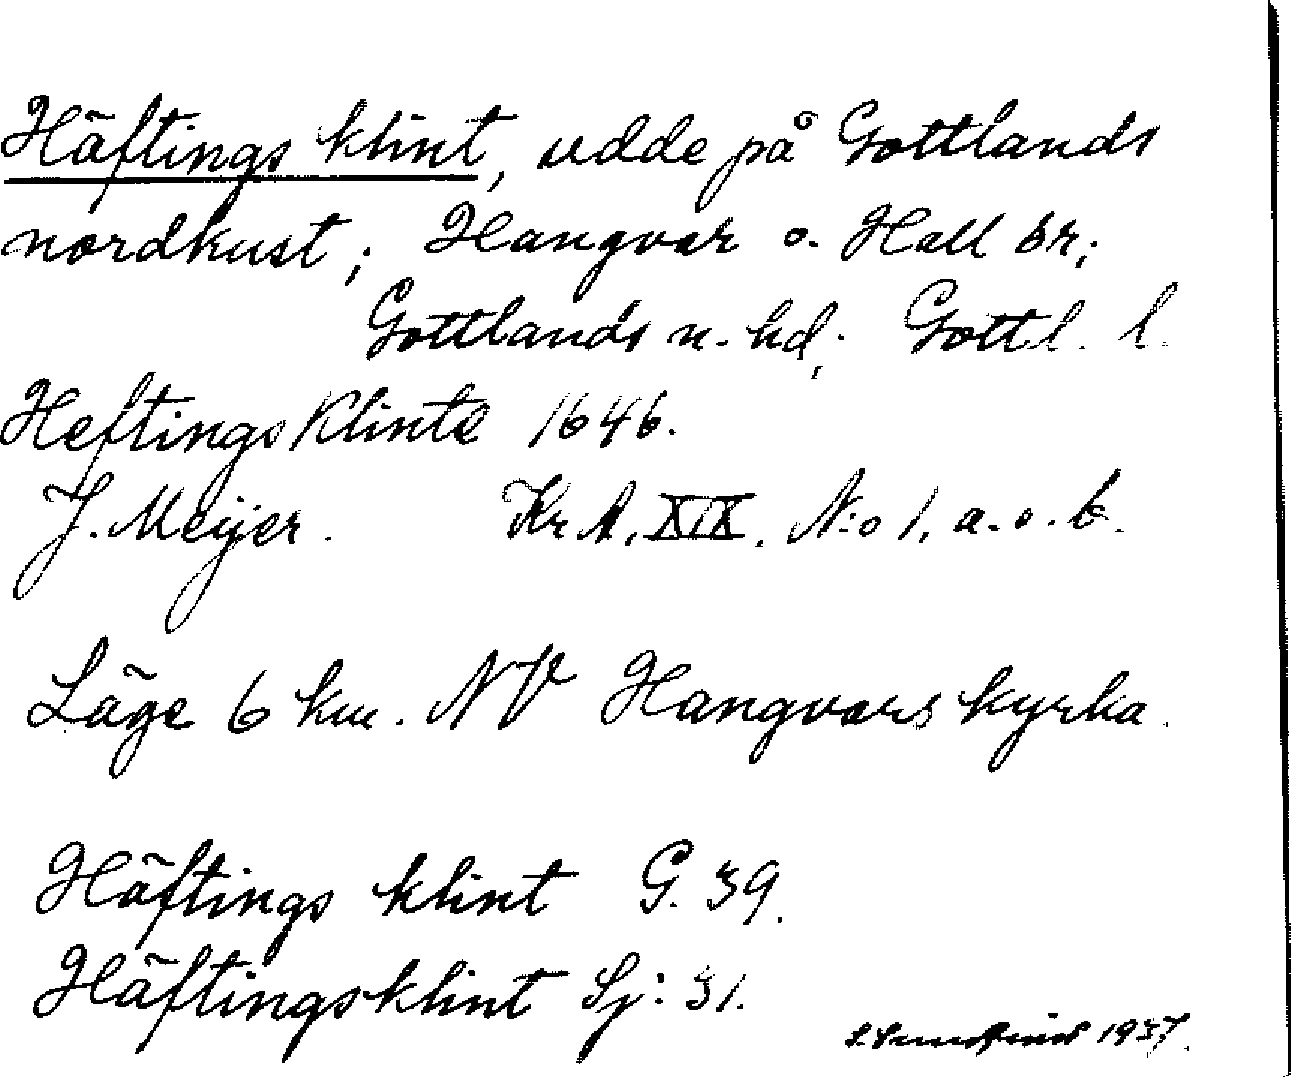 Häftings klint, udde på Gottlands
nordkust; Hangvar o. Hall sr;
Gottlands n. hd; Gottl. l.
Heftings Klinte 1646.
J. Meijer. Kr A, XIX, N:o 1, a. o. b.
Läge 6 km. NV Hangvars kyrka.
Häftings klint G. 39.
Häftingsklint Sj: 31.
1937.